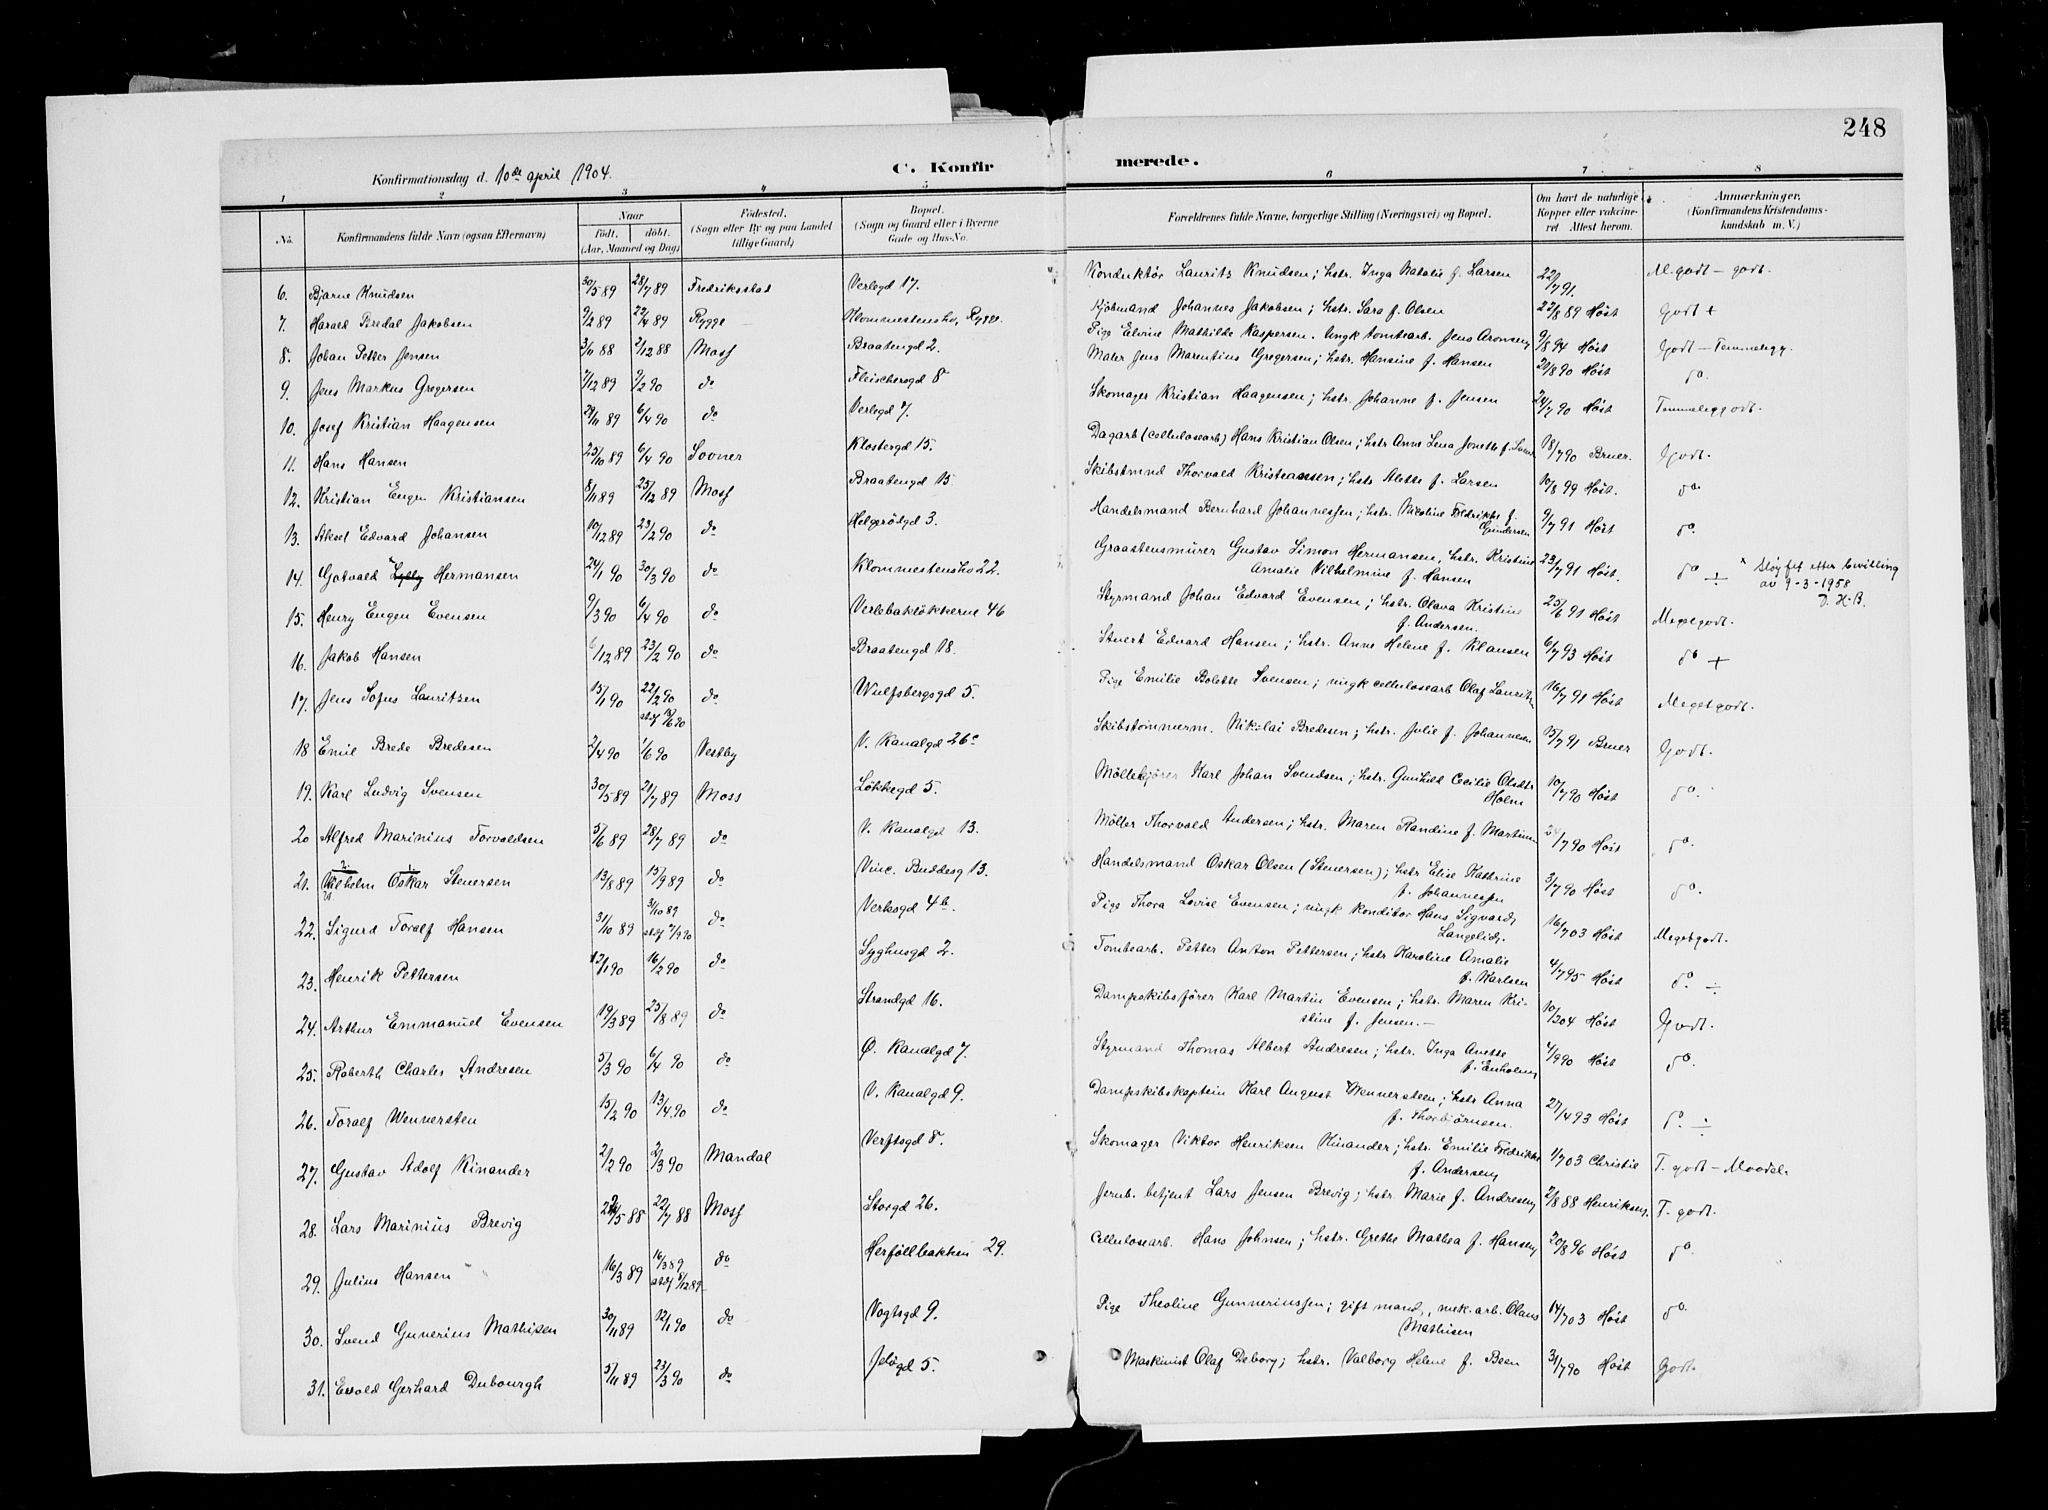 248
Konfirmationsdag d. 10de april 1904. C. Konfir merede.
1 2 3 4 5 6 7 8
No. Konfirmandens fulde Navn (ogsaa Efternavn) Naar Födt. döbt. (Aar, Maaned og Dag) Födested. (Sogn eller By og paa Landet tillige Gaard) Bopæl. (Sogn og Gaard eller i Byerne Gade og Hus-No. Forældrenes fulde Navne, borgerlige Stilling (Næringsvei) og Bopæl. Om havt de naturlige Kopper eller vakcineret Attest herom. Anmærkninger. (Konfirmandens Kristendomskundskab m. V.)
6. Bjarne Knudsen 30/5 89 28/7 89 Fredriksstad Verlegd 17. Konduktør Laurits Knudsen; hstr. Inga Natalie f. Larsen 22/7 91. M godt - godt.
7. Harald Bredal Jakobsen 9/2 89 29/4 89 Rygge Klommestenshv, Rygge. Kjöbmand Johannes Jakobsen; hstr. Sara f. Olsen 23/8 89 Höst Godt +
8. Johan Petter Jensen 3/11 88 2/12 88 Moss Braatengd 2. Pige Elvine Mathilde Kaspersen. Ungk tomtearb. Jens Aronsen 9/8 94 Höst Godt - Temmeligg.
9. Jens Markus Gregersen 7/12 89 9/2 90 do Fleischersgd 8 Maler Jens Marentius Gregersen; hstr. Hansine f. Hansen 20/8 90 Höst do.
10. Josef Kristian Haagensen 29/11 89 6/4 90 do Verlegd 7. Skomager Kristian Haagensen; hstr. Johanne f. Jensen 24/7 90 Höst Temmeliggodt.
11. Hans Hansen 25/10 89 6/4 90 Sovner Klostergd 15. Dagarb (cellulosearb) Hans Kristian Olsen; hstr Anne Lena Jonette f. 18/7 90 Bruer. Godt.
12. Kristian Eugen Kristiansen 8/11 89 25/12 89 Moss Braatengd 15. Skibstmnd Thorvald Kristeansen; hstr Alette f. Larsen 10/8 99 Höst. do
13. Aksel Edvard Johansen 10/12 89 23/2 90 do Helgerödgd 3. Handelsmand Bernhard Johannessen; hstr. Nicoline Fredrikke f. Gundersen 9/7 91 Höst do.
14. Gotvald Lylly Hermansen 24/1 90 30/3 90 do Klommestenshv 22. Graastensmurer Gustav Simon Hermansen, hstr. Kristine Amalie Vilhelmine f. Hansen 23/7 91 Höst. do ÷ × Sløyfet etter bevilling av 9-3-1958 D. H-B.
15. Henry Eugen Evensen 9/3 90 6/4 90 do Verlebakløkkerne 46 Styrmand Johan Edvard Evensen; hstr. Olava Kristine f. Andersen. 25/6 91 Höst Megetgodt.
16. Jakob Hansen 6/12 89 23/2 90 do Braatengd 18. Stuert Edvard Hansen; hstr. Anne Helene f. Klausen 6/7 93 Höst do +
17. Jens Sofus Lauritsen 15/1 90 22/2 90 do Wulfsbergsgd 5. Pige Emilie Bolette Svensen; ungk cellulosearb Olaf Lauritsen 16/7 91 Höst Megetgodt.
18 Emil Brede Bredesen 2/4 90 1/6 90 Vestby V. Kanalgd 26c Skibstømmerm. Nikolai Bredesen; hstr. Julie f. Johannesen 15/7 91 Bruer Godt.
19. Karl Ludvig Svensen 30/5 89 21/7 89 Moss Lökkegd 5. Möllekjörer Karl Johan Svendsen; hstr. Gunhild Cecilie Olsdtr Holm 10/7 90 Höst do.
20 Alfred Marinius Torvaldsen 5/6 89 28/7 89 do V. Kanalgd 13. Möller Thorvald Andersen; hstr. Maren Randine f. Martins 7 90 Höst do.
21. Wilhelm Oskar Stenersen 13/8 89 15/9 89 do Vinc. Buddesg 13. Handelsmand Oskar Olsen (Stenersen); hstr Elise Kathrine f. Johannessen 3/7 90 Höst do.
22. Sigurd Toralf Hansen 31/10 89 31/10 89 do Verksgd 4b. Pige Thora Lovise Evensen; ungk konditor Hans Sigvard Langelid. 16/7 03 Höst Megetgodt.
23. Henrik Pettersen 12/1 90 16/2 90 do Syghusgd 2. Tomtearb. Petter Anton Pettersen; hstr Karoline Amalie f. Karlsen 4/7 95 Höst do. ÷
24. Arthur Emmanuel Evensen 19/3 89 25/8 89 do Strandgd 16. Dampskibsfører Karl Martin Evensen; hstr. Maren Kristine f. Jensen. - 10/3 04 Höst Godt.
25. Roberth Charles Andresen 5/3 90 6/4 90 do Ø. Kanalgd 7. Styrmand Thomas Albert Andresen; hstr. Inga Anette f. Enholm 4/9 90 Höst do.
26. Toralf Wennersten 15/2 90 13/4 90 do V. Kanalgd 9. Dampskibskaptein Karl August Wennersteen; hstr Anna f. Thorbjörnsen. 27/4 93 Höst do ÷
27. Gustav Adolf Kinander 2/2 90 2/3 90 Mandal Verftsgd 8. Skomager Viktor Henriksen Kinander; hstr. Emilie Fredrikke f. Andersen 1/7 03 Christie T. godt - Maadel.
28. Lars Marinius Brevig 5 88 22/7 88 Moss Storgd 26. Jernb. betjent Lars Jensen Brevig; hstr. Marie f. Andresen 2/8 88 Henriksen. T. godt.
29. Julius Hansen 16/3 89 16/3 89 do Herföllbakken 29. Cellulosearb. Hans Johnsen; hstr. Grethe Mathea f. Hansen 20/8 96 Höst do.
30. Svend Gunerius Mathisen 30/11 89 12/1 90 do Vogtsgd 9. Pige Theoline Gunneriussen; gift mand, mek. arb. Olaus Mathisen 14/7 03 Höst do.
31. Evald Gerhard Dubourgh 5/11 89 23/3 90 do Jelögd 5. Maskinist Olaf Deborg; hstr. Valborg Helene f. Been 31/7 90 Höst Godt.